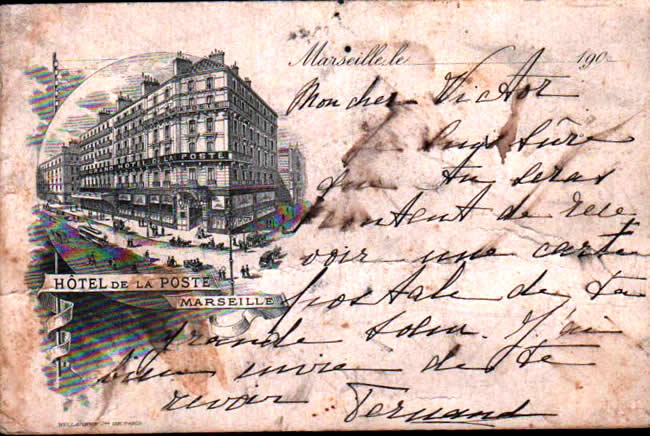 Marseille, le 190
Mon cher Victor
Je suis sûre
que tu seras
content de rece
voir une carte
postale de ta
grande sœur. J'ai
bien envie de te
revoir Fernand
GRAND HÔTEL DE LA POSTE
HÔTEL DE LA POSTE
MARSEILLE